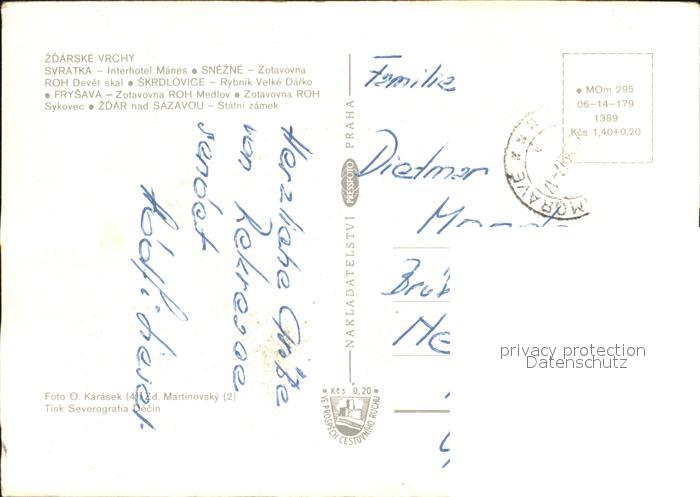 ŽĎÁRSKÉ VRCHY
SVRATKA – Interhotel Mánes ● SNĚŽNÉ – Zotavovna
ROH Devět skal ● ŠKRDLOVICE – Rybník Velké Dářko
● FRYŠAVA – Zotavovna ROH Medlov ● Zotavovna ROH
Sykovec ● ŽĎÁR nad SÁZAVOU – Státní zámek
Herzliche Grüße
von
sendet
Foto O. Karásek (4), Zd. Martinovský (2)
Tisk Severografia Děčín
NAKLADATELSTVÍ PRESSFOTO PRAHA
● Kčs 0,20 ●
VE PROSPĚCH CESTOVNÍHO RUCHU
Familie
Dietmar
● MOm 295
06-14-179
1389
Kčs 1,40+0,20
MORAVĚ
privacy protection
Datenschutz